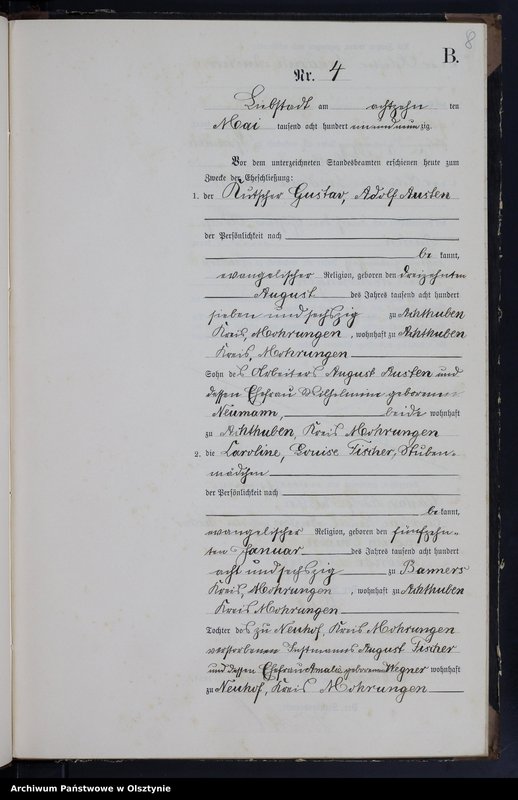 8
B.
Nr. 4
Liebstadt am achtzehn ten
Mai tausend acht hundert neunundneunzig.
Vor dem unterzeichneten Standesbeamten erschienen heute zum
Zwecke der Eheschließung:
1. der Kutscher Gustav, Adolf Austen
der Persönlichkeit nach
be kannt,
evangelischer Religion, geboren den dreizehnten
August des Jahres tausend acht hundert
sieben und sechszig zu Achthuben
Kreis, Mohrungen, wohnhaft zu Achthuben
Kreis, Mohrungen
Sohn des Arbeiters August Austen und
dessen Ehefrau Wilhelmine geborenen
Neumann, beide wohnhaft
zu Achthuben, Kreis Mohrungen
2. die Caroline, Louise Fischer, Stuben-
mädchen
der Persönlichkeit nach
be kannt,
evangelischer Religion, geboren den fünfzehn-
ten Januar des Jahres tausend acht hundert
acht und sechszig zu Banners
Kreis, Mohrungen, wohnhaft zu Achthuben
Kreis Mohrungen
Tochter des zu Neuhof, Kreis Mohrungen
verstorbenen Instmanns August Fischer
und dessen Ehefrau Amalie geborenen Wegner wohnhaft
zu Neuhof, Kreis Mohrungen
Archiwum Państwowe w Olsztynie